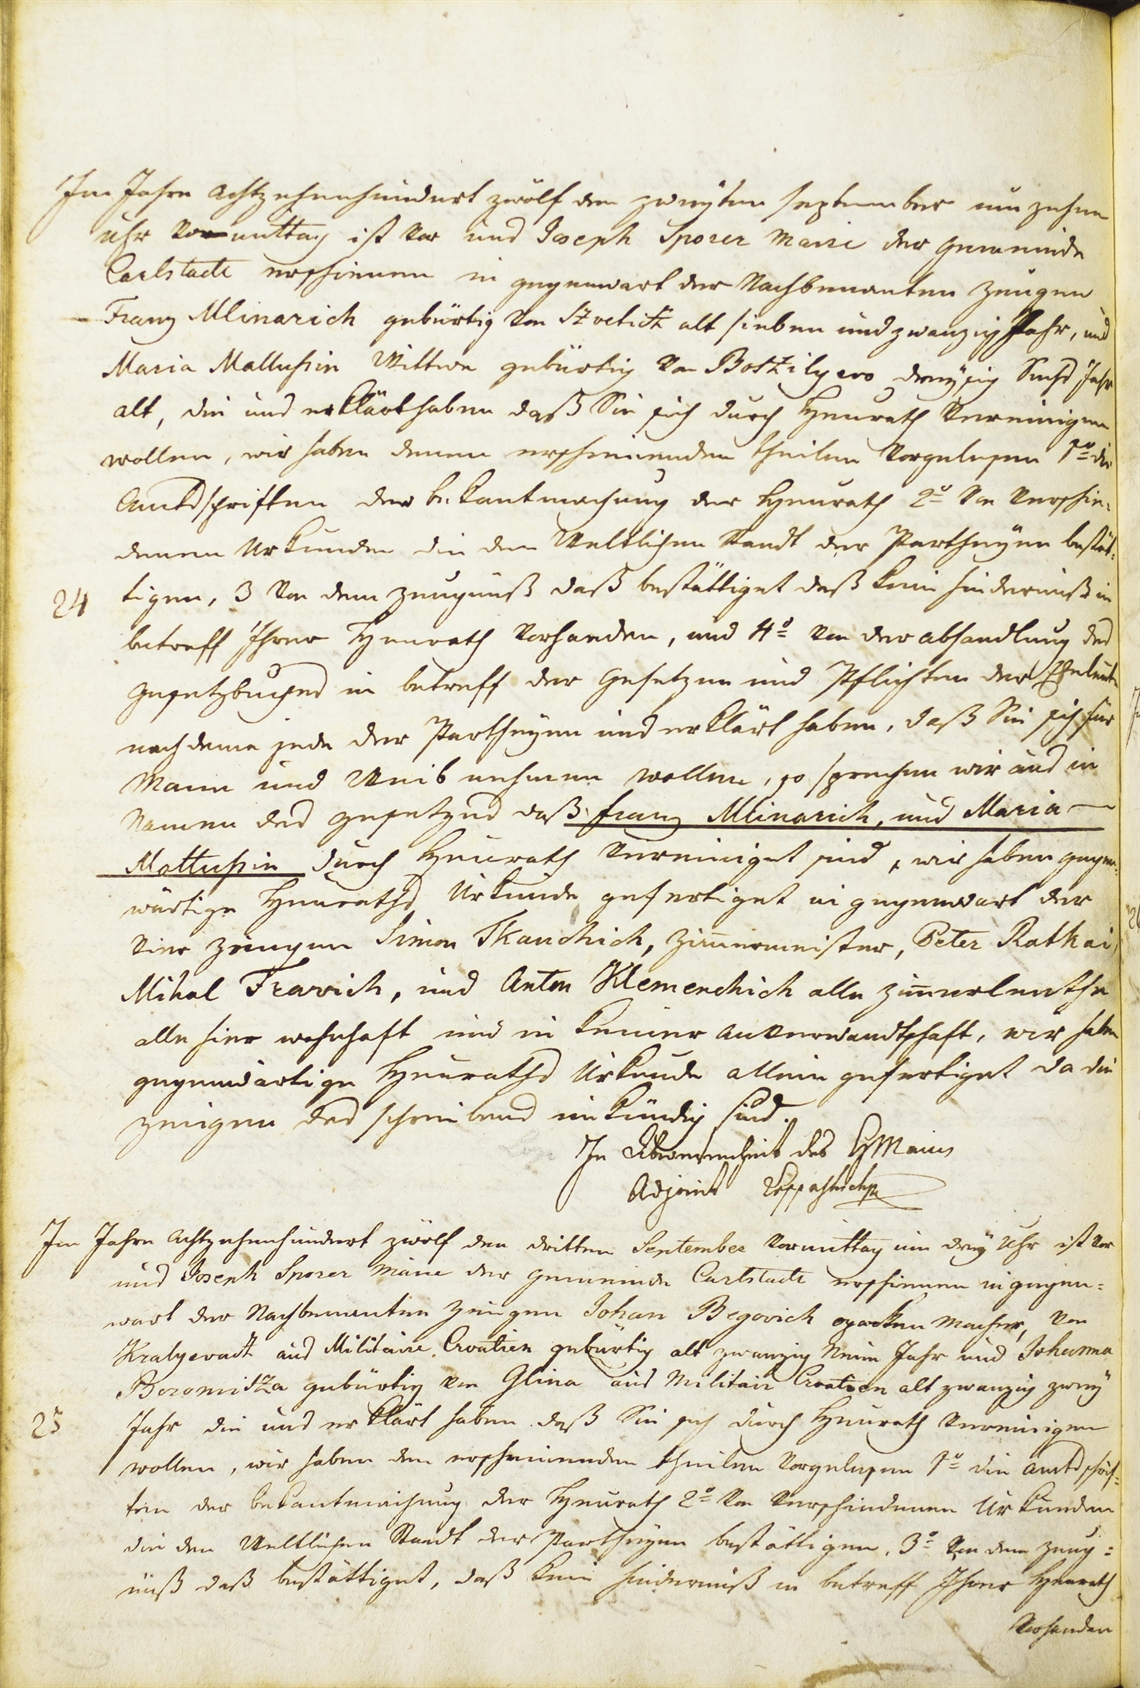 Im Jahre Achtzehenhundert zwölf den zweyten September um zehen
Uhr Vormittag ist vor uns Joseph Sporer Maire der gemeinde
Carlstadt erschienen in gegenwart der Nachbenanten Zeugen
Franz Mlinarich gebürtig von Szvetich alt sieben und zwanzig Jahr, und
Maria Mallussin Wittwe gebürtig von Boszilyevo dreyßig Sechs Jahr
alt, die uns erklärt haben daß Sie sich durch Heurath Vereinigen
wollen, wir haben denen erscheinenden theilen Vorgelesen 1º die
Amtsschriften der bekantmachung der Heurath 2º von Verschie=
denen Urkunden die den Weltlichen Standt der Partheyen bestät=
24 tigen, 3 von dem Zeugnuß daß bestättiget daß kein hinderniß in
betreff Ihrer Heurath Vorhanden, und 4º von der abhandlung des
gesetzbuches in betreff der Gesetzen und Pflichten der Eheleute
nach deme jede der Partheyen uns erklärt haben, daß Sie sich für
Mann und Weib nehmen wollen, so sprechen wir aus in
Namen des gesetzes daß franz Mlinarich, und Maria
Mallussin durch Heurath Vereiniget sind, wir haben gegen=
wärtige Heuraths Urkunde gefertiget in gegenwart der
vier zeugen Simon Tkauchich, Zimermeister, Peter Rathai,
Mihal Fravich, und Anton Klemenchich alle Zimerleuthe
alle hier wohnhaft und in keiner Anverwandtschaft, wir haben
gegenwärtige Heuraths Urkunde allein gefertiget da die
zeugen des schreibens unkündig sind.
In Abwesenheit des H Maires
Adjoint
Im Jahre Achtzehenhundert zwölf den dritten September Vormittag um drey Uhr ist vor
uns Joseph Sporer Maire der gemeinde Carlstadt erschienen in gegen=
wart der Nachbenanten Zeugen Johan Begovich macher, von
Kralyevadt aus Militaire Croatien gebürtig alt zwanzig Neun Jahr und Johanna
Boromitza gebürtig von Glina aus Militair Croatien alt zwanzig zwey
25 Jahr die uns erklärt haben daß Sie sich durch Heurath Vereinigen
wollen, wir haben den erscheinenden theilen Vorgelesen 1º die Amtsschrif=
ten der bekantmachung der Heurath 2º von Verschiedenen Urkunden
die den Weltlichen Standt der Partheyen bestättigen, 3º von dem Zeug=
nuß daß bestättiget, daß kein hinderniß in betreff Ihrer Heurath
Vorhanden